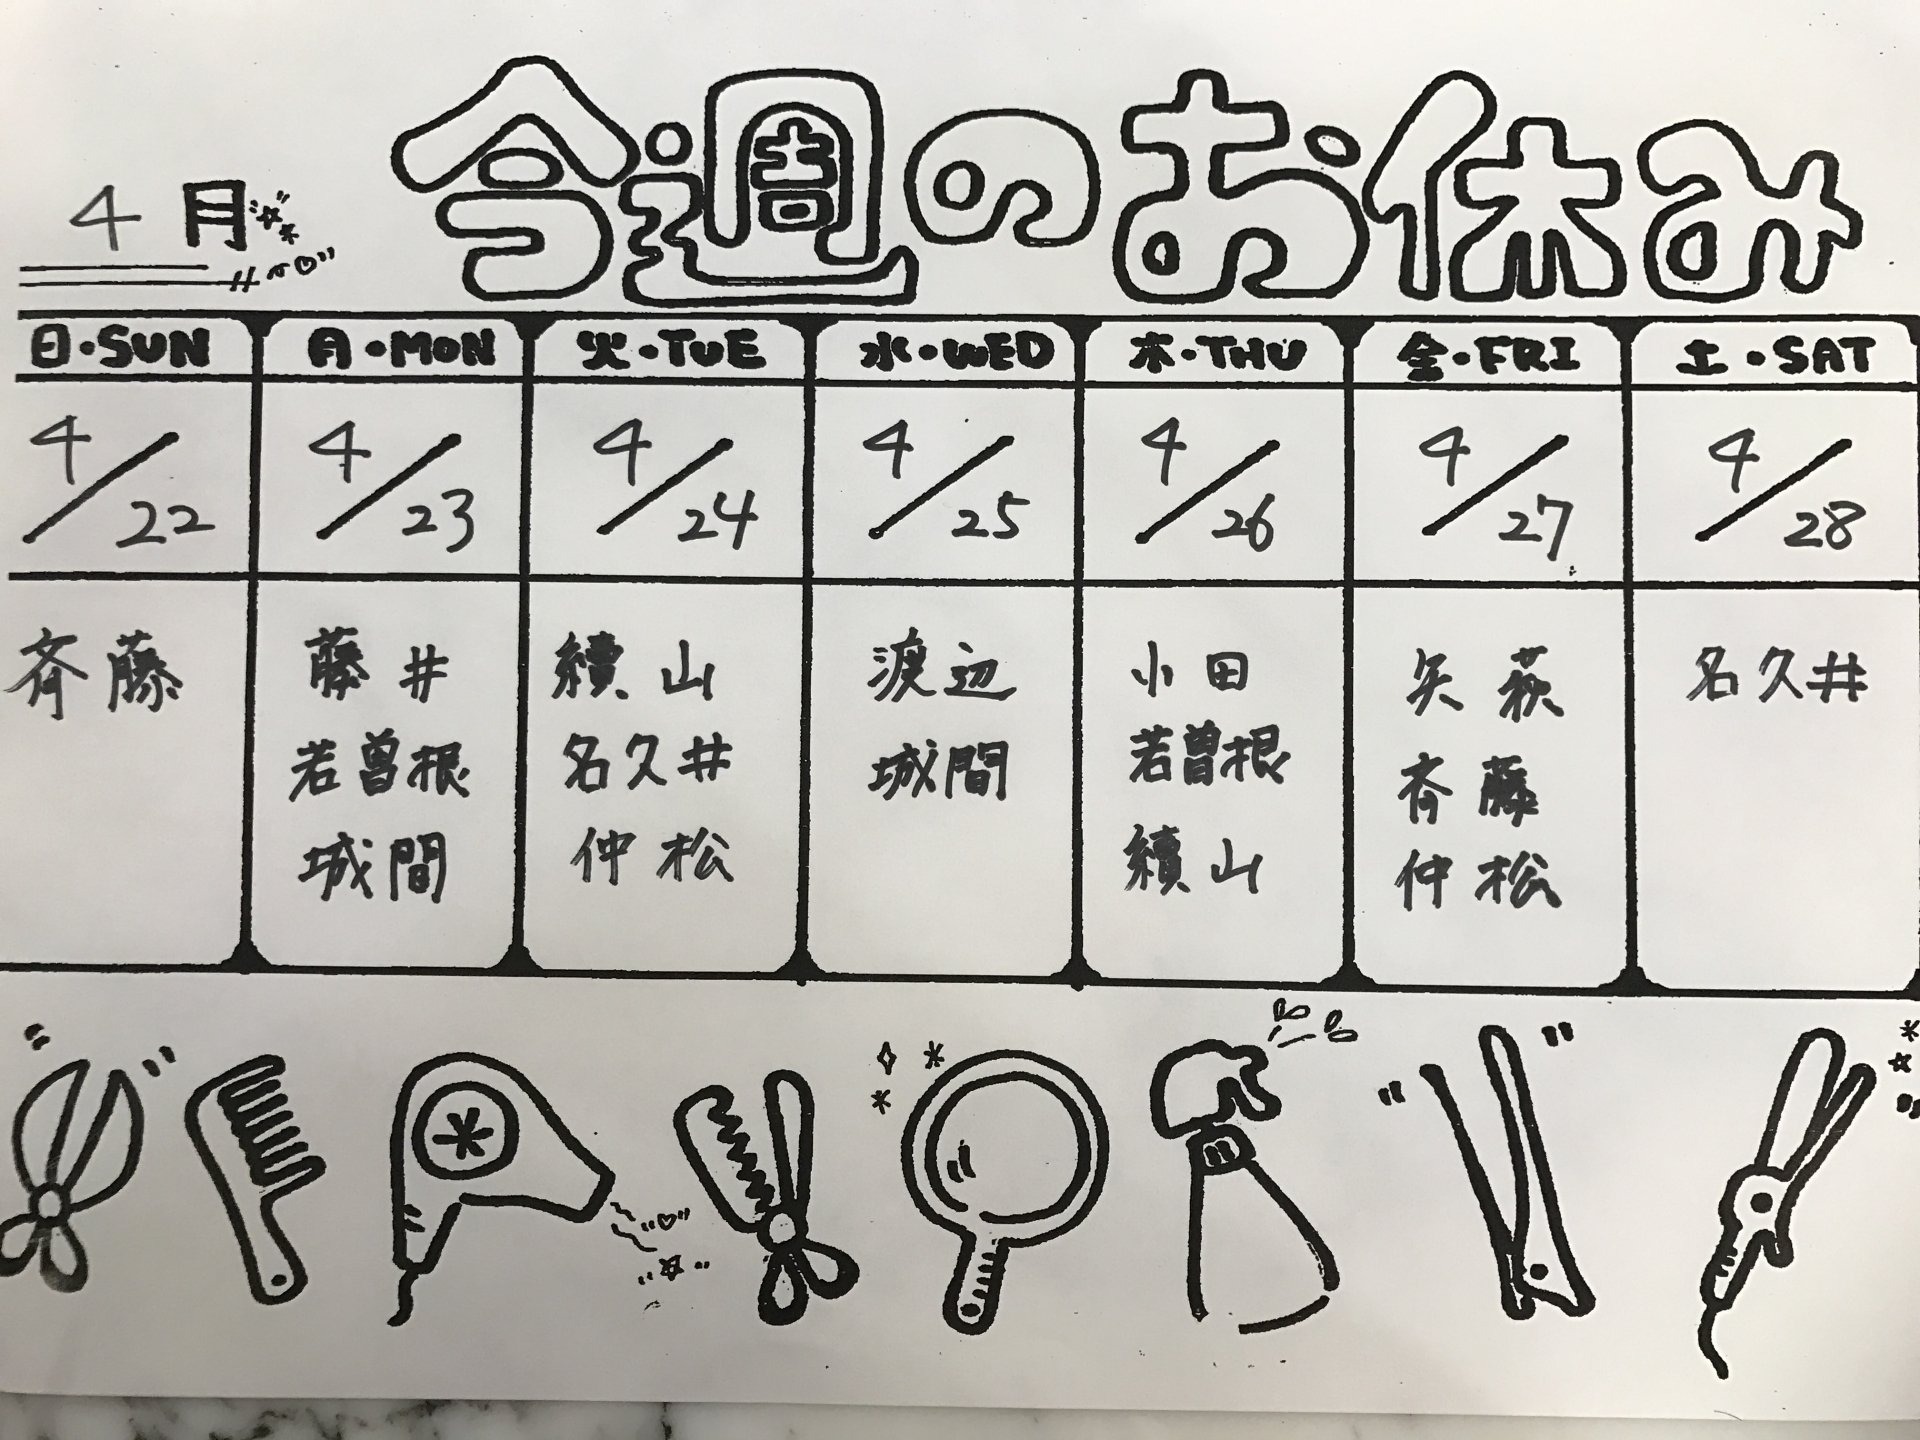 4月
今週のお休み
日・SUN 月・MON 火・TUE 水・WED 木・THU 金・FRI 土・SAT
4/22 4/23 4/24 4/25 4/26 4/27 4/28
斉藤 藤井 續山 渡辺 小田 矢萩 名久井
若曽根 名久井 城間 若曽根 斉藤
城間 仲松 續山 仲松